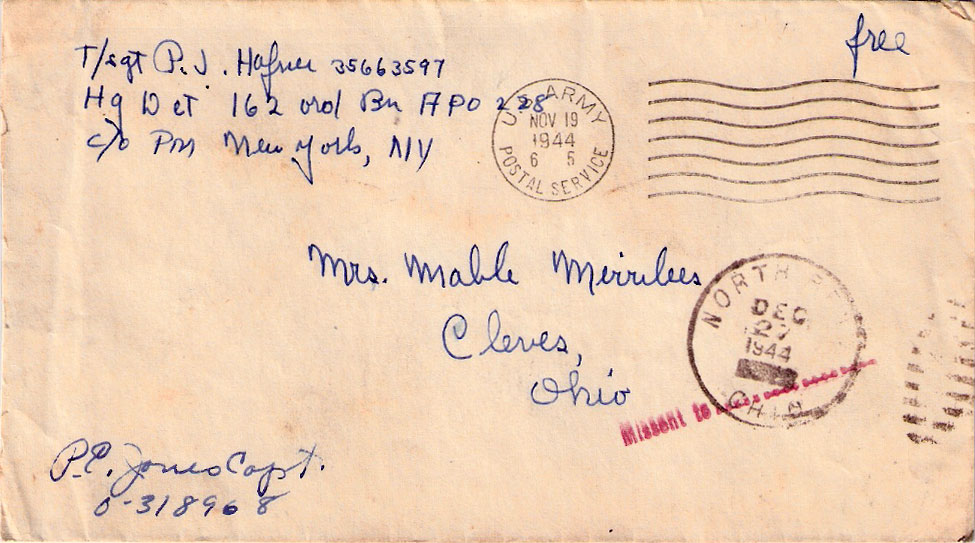 free
T/sgt P. J. Hafner 35663597
Hq Det 162 ord Bn APO 228
c/o Pm New York, NY
U.S. ARMY
NOV 19
1944
6 5
POSTAL SERVICE
Mrs. Mable Merrilees
Cleves,
Ohio
NORTH
DEC
27
1944
OHIO
Missent to
P.E. Jones Capt.
O-318968